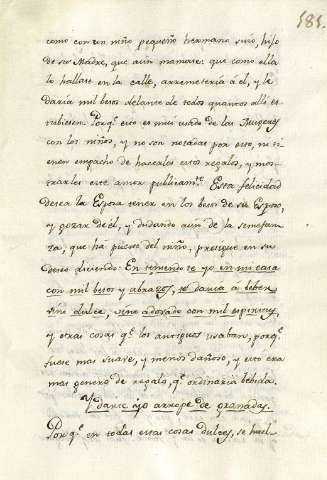 585.
como con un niño pequeño hermano suio, hijo
de su Madre, que aun mamase: que como ella
lo hallase en la calle, arremetería á él, y le
daría mil besos delante de todos quantos allí es-
tubiesen. Porq.e esto es mui usado de las Mugeres
con los niños, y no son notadas por esto, ni ti-
enen empacho de hacerles estos regalos, y mos-
trarles este amor publicam.te Esta felicidad
desea la Esposa tener en los besos de su Esposo,
y gozar de él, y dudando aun de la semejan-
za, que ha puesto del niño, prosigue en su
deseo diciendo: En teniendo te yo en mi casa
con mil besos y abrazos, te daría á beber
vino dulce, vino adobado con mil espicies,
y otras cosas q.e los antiguos usaban, porq.e
fuese mas suave, y menos dañoso, y esto era
mas genero de regalo, q.e ordinaria bebida.
Y darte yo arrope de granadas.
Porq.e en todas estas cosas dulces, se huel-